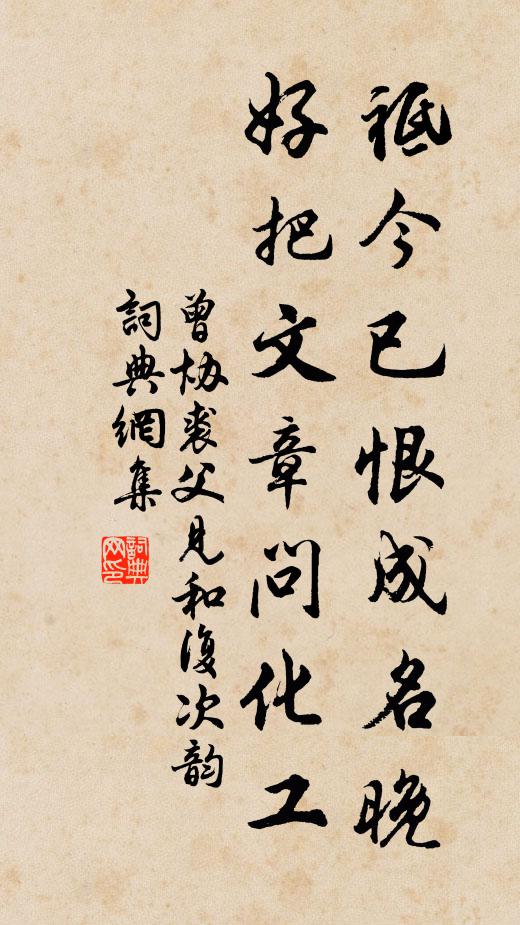 祗今已恨成名晚
好把文章問化工
曾協裘父見和復次韵
詞典網集
詞典网印